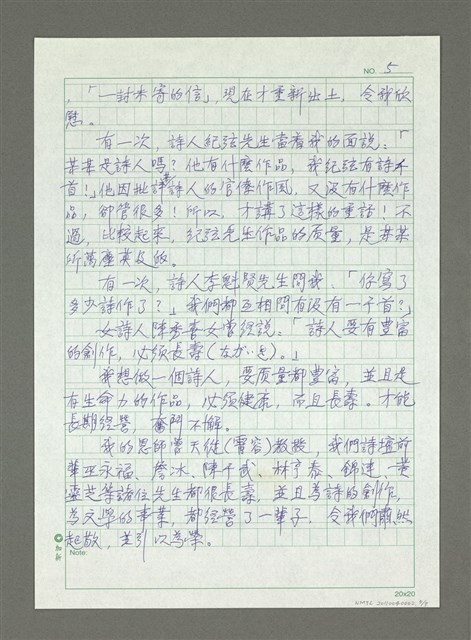 NO. 5
，「一封未寄的信」，現在才重新出土，令我欣
慰。
有一次，詩人紀弦先生當着我的面說：「
某某是詩人嗎？他有什麼作品，我紀弦有詩千
首！」他因批評某詩人的官僚作風，又沒有什麼作
品，卻管很多！所以，才講了這樣的重話！不
過，比較起來，紀弦先生作品的质量，是某某
所萬塵莫及的。
有一次，詩人李魁賢先生問我、「你寫了
多少詩作了？」我們都互相問有沒有一千首？」
女詩人陳秀喜女士曾經說：「詩人要有豐富
的創作，必須長壽（ながいき）。」
我想做一個詩人，要质量都豐富，並且是
有生命力的作品，必須健康，而且長壽。才能
長期經營，奮鬥不懈。
我的恩師曹天從（雲容）教授，我們詩壇前
輩巫永福、詹冰、陳千武、林亨泰、錦連、黃
靈芝等諸位先生都很長壽，並且為詩的創作，
為文學的事業，都經營了一輩子，令我們肅然
起敬，並引以為榮。
Note:
20x20